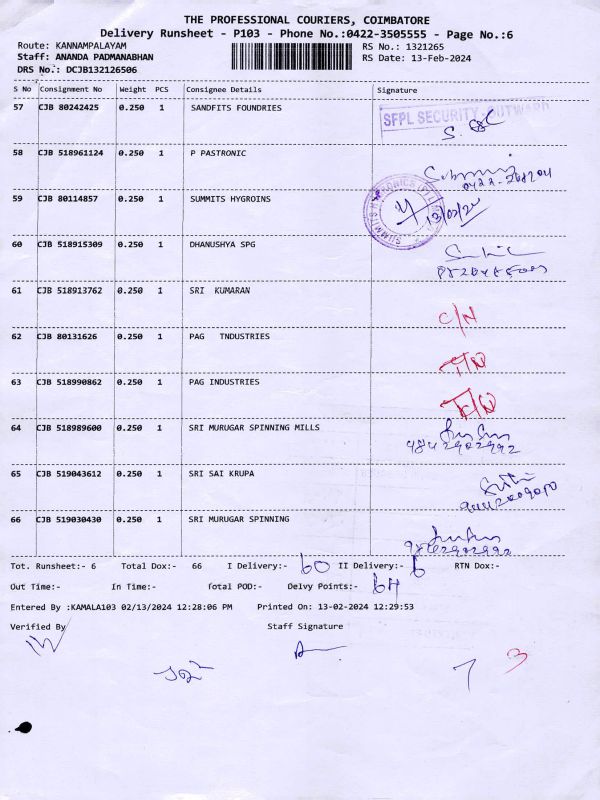 THE PROFESSIONAL COURIERS, COIMBATORE
Delivery Runsheet - P103 - Phone No.:0422-3505555 - Page No.:6
Route: KANNAMPALAYAM RS No.: 1321265
Staff: ANANDA PADMANABHAN RS Date: 13-Feb-2024
DRS No.: DCJB132126506
S No Consignment No Weight PCS Consignee Details Signature
57 CJB 80242425 0.250 1 SANDFITS FOUNDRIES
SFPL SECURITY-OUTWARD
58 CJB 518961124 0.250 1 P PASTRONIC
59 CJB 80114857 0.250 1 SUMMITS HYGROINS
13/02/24
60 CJB 518915309 0.250 1 DHANUSHYA SPG
61 CJB 518913762 0.250 1 SRI KUMARAN
C/N
62 CJB 80131626 0.250 1 PAG TNDUSTRIES
63 CJB 518990862 0.250 1 PAG INDUSTRIES
64 CJB 518989600 0.250 1 SRI MURUGAR SPINNING MILLS
9842902992
65 CJB 519043612 0.250 1 SRI SAI KRUPA
66 CJB 519030430 0.250 1 SRI MURUGAR SPINNING
9842902992
Tot. Runsheet:- 6 Total Dox:- 66 I Delivery:- 60 II Delivery:- 6 RTN Dox:-
Out Time:- In Time:- Total POD:- Delvy Points:- 64
Entered By :KAMALA103 02/13/2024 12:28:06 PM Printed On: 13-02-2024 12:29:53
Verified By Staff Signature
7 3